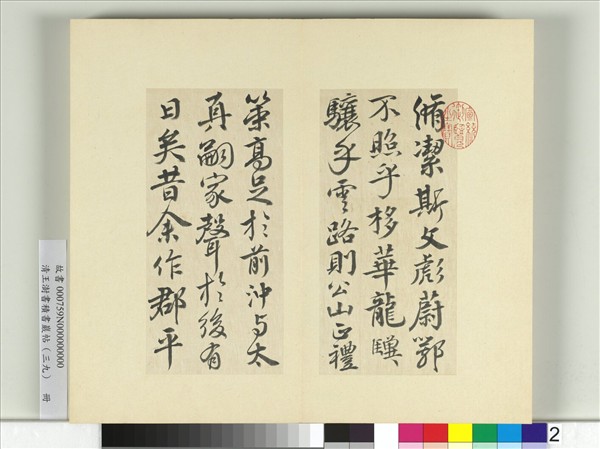 脩潔斯文彪蔚鄂
不照乎栘華龍驥
驤乎雲路則公山正禮
策高足於前沖与太
真嗣家聲於後有
日矣昔余作郡平
故書 000759N000000000
清王澍書積書巖帖（三九） 冊
2